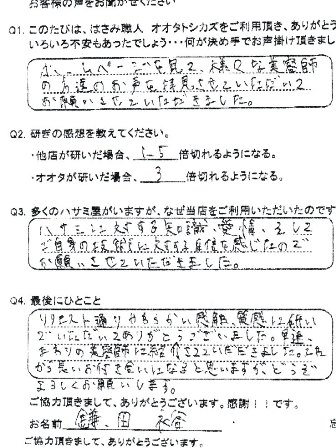 お客様の声をお聞かせください
Q1. このたびは、はさみ職人 オオタトシカズをご利用頂き、ありがとう
いろいろ不安もあったでしょう・・・何が決め手でお声掛け頂きまし
ホームページを見て、様々な美容師
の方達のお声を拝見させていただいて
お願いさせていただきました。
Q2. 研ぎの感想を教えてください。
・他店が研いだ場合、1-5 倍切れるようになる。
・オオタが研いだ場合、3 倍切れるようになる。
Q3. 多くのハサミ屋がいますが、なぜ当店をご利用いただいたのです
ハサミに対する知識、愛情、そして
ご自身のお仕事に対する自信を感じたので
お願いさせていただきました。
Q4. 最後にひとこと
リクエスト通りやわらかい感触、質感に研い
でいただいてありがとうございました。早速、
まわりの美容師に紹介させていただきました。これ
から長いお付き合いになると思いますがどうぞ
よろしくお願いします。
ご協力頂きまして、ありがとうございます。感謝！！です。
お名前 田
ご協力頂きまして、ありがとうございます。